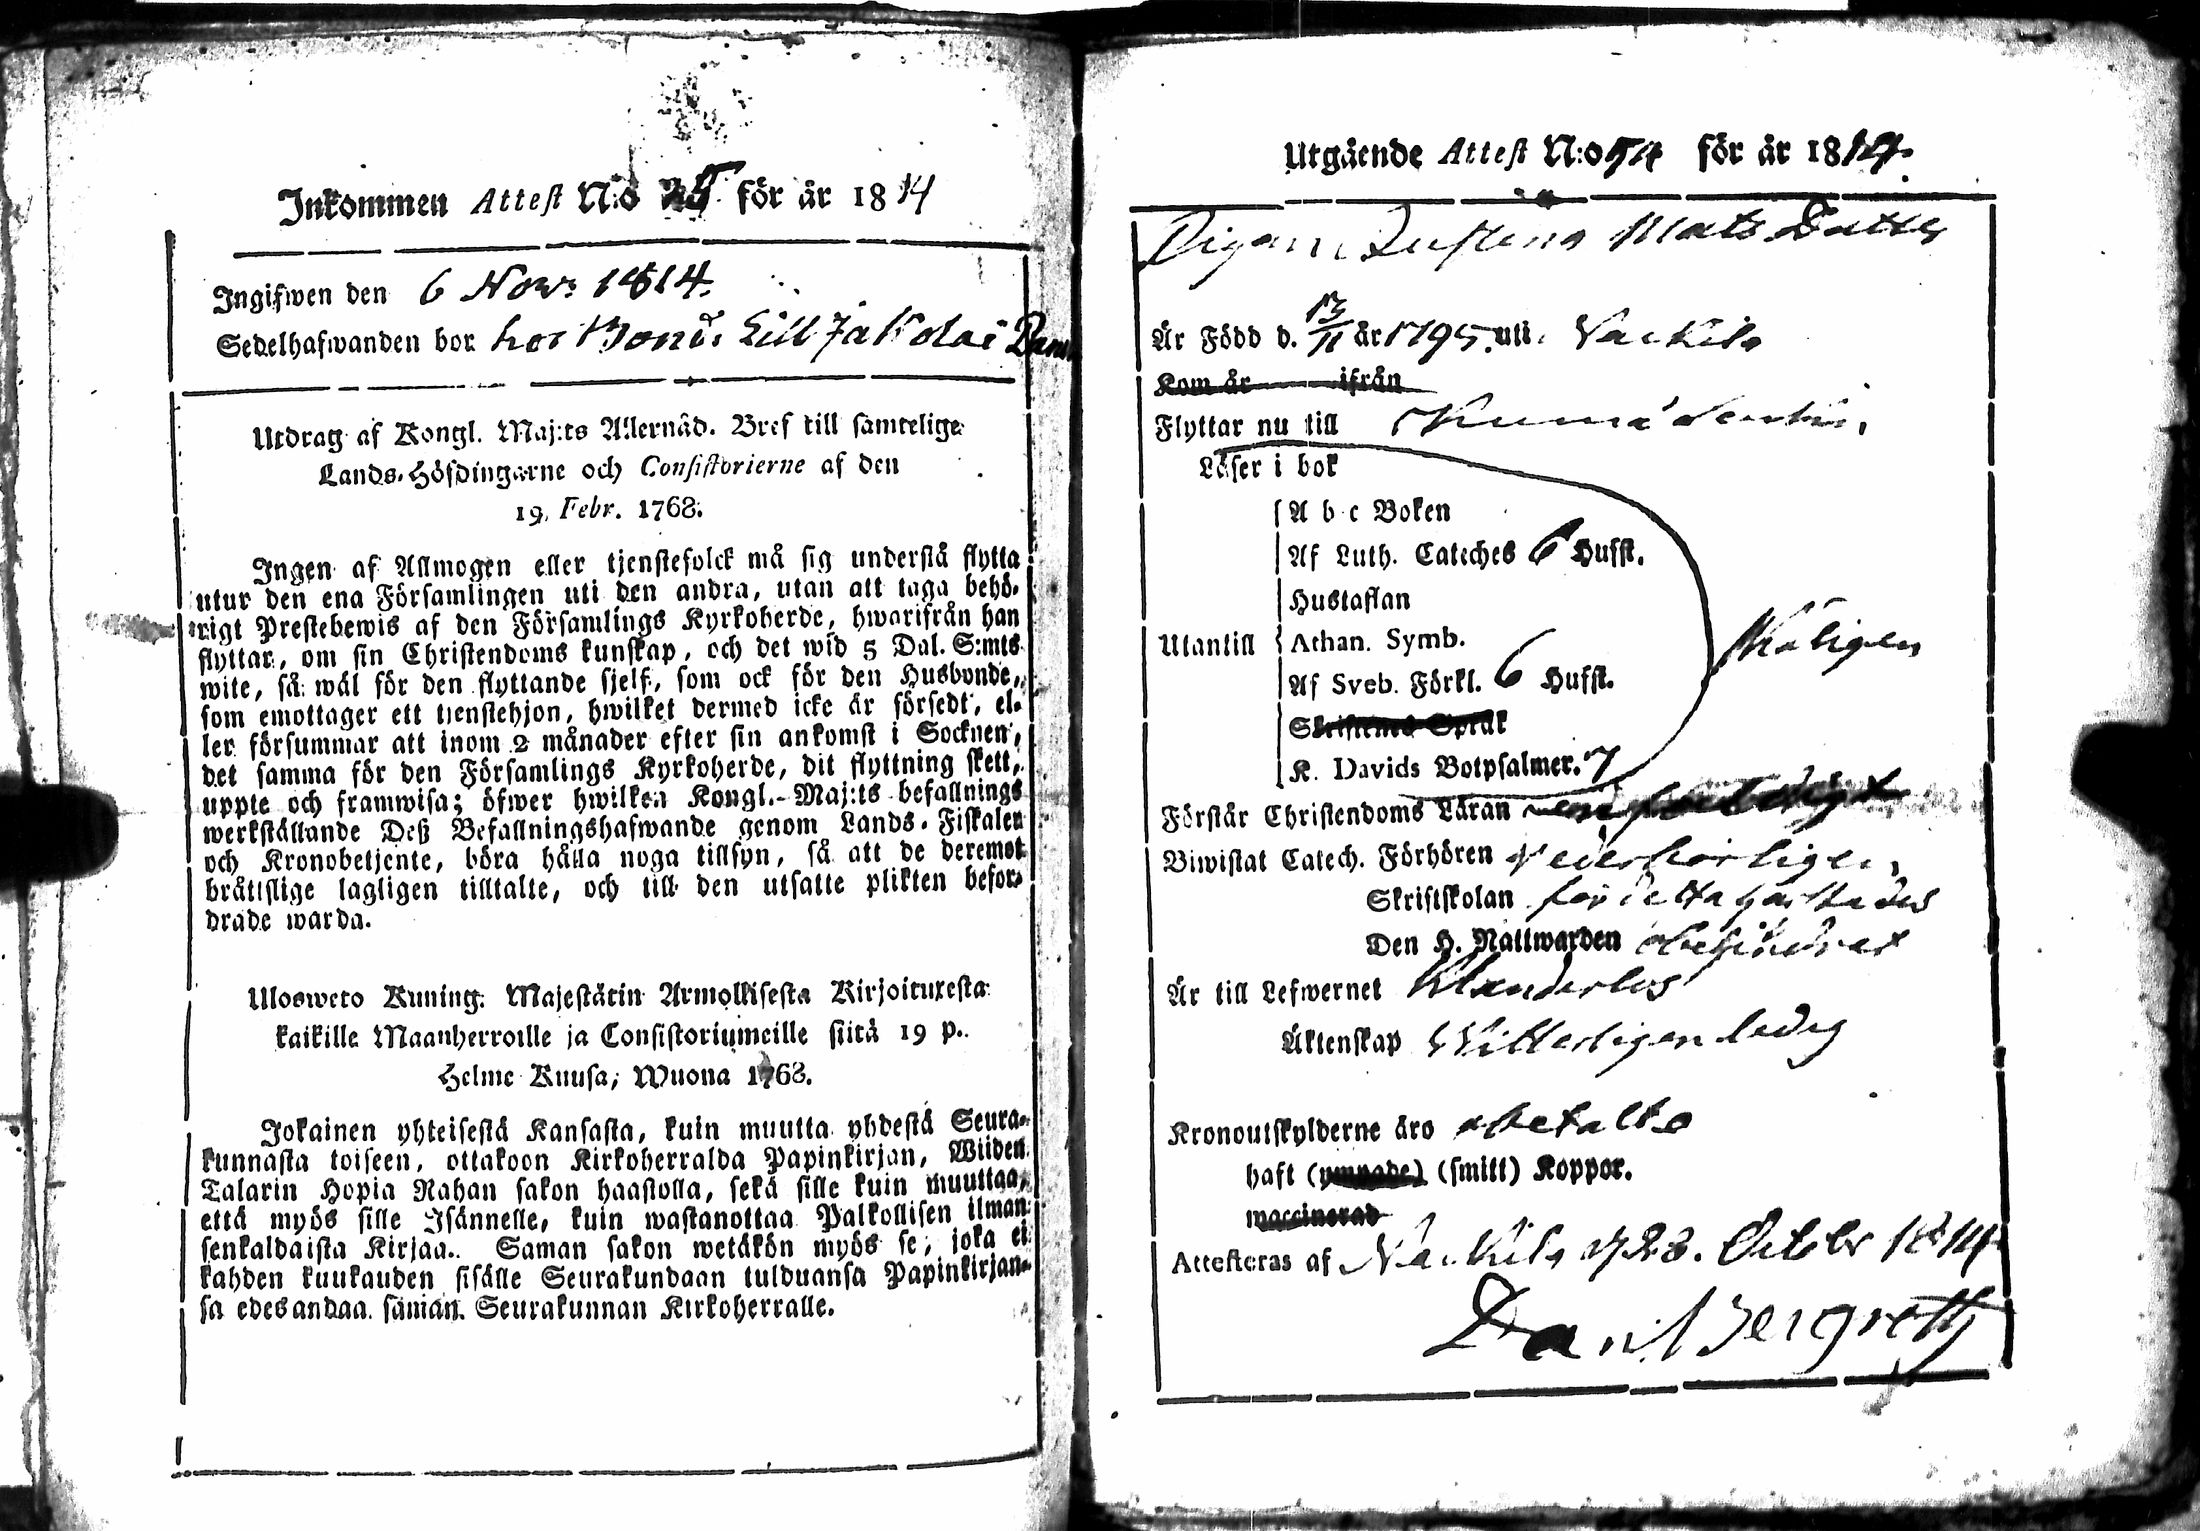 Inkommen Attest N:o 25 för år 1814
Ingifwen den 6 Nov: 1814.
Sedelhafwanden bor hos Bond: till Jakolai
Utdrag af Kongl. Maj:ts Allernåd. Bref till samtelige
Lands-Höfdingarne och Consistorierne af den
19. Febr. 1768.
Ingen af Allmogen eller tjenstefolck må sig understå flytta
utur den ena Församlingen uti den andra, utan att taga behö-
rigt Prestebewis af den Församlings Kyrkoherde, hwarifrån han
flyttar, om sin Christendoms kunskap, och det wid 5 Dal. S:mts
wite, så wäl för den flyttande sjelf, som ock för den Husbonde,
som emottager ett tjenstehjon, hwilket dermed icke är försedt, el-
ler försummar att inom 2 månader efter sin ankomst i Socknen,
det samma för den Församlings Kyrkoherde, dit flyttning skett,
uppte och framwisa; öfwer hwilken Kongl. Maj:ts befallnings
werkställande Deß Befallningshafwande genom Lands-Fiskalen
och Kronobetjente, böra hålla noga tillsyn, så att de deremot
bråttslige lagligen tilltalte, och till den utsatte plikten befor-
drade warda.
Ulosweto Kuning. Majestätin Armollisesta Kirjoituxesta
kaikille Maanherroille ja Consistoriumeille siitä 19 p.
Helme Kuusa, Wuona 1768.
Jokainen yhteisestä Kansasta, kuin muutta yhdestä Seura-
kunnasta toiseen, ottakoon Kirkoherralda Papinkirjan, Wiiden
Talarin Hopia Rahan sakon haastolla, sekä sille kuin muuttaa,
että myös sille Isännelle, kuin wastanottaa Palkollisen ilman
senkaldaista Kirjaa. Saman sakon wetäkön myös se, joka ei
kahden kuukauden sisälle Seurakundaan tulduansa Papinkirjan-
sa edesandaa saman Seurakunnan Kirkoherralle.
Utgående Attest N:o 54 för år 1814.
Pigan Justina Mats Dotter
Är Född d. 13/11 år 1795. uti Nackila
Kom år ifrån
Flyttar nu till
Läser i bok
A b c Boken
Af Luth. Cateches 6 Hufst.
Hustaflan
Utantill Athan. Symb.
Af Sveb. Förkl. 6 Hufst.
Skriftenes Språk
K. Davids Botpsalmer. 7
Förstår Christendoms Läran
Biwistat Catech. Förhören wederbörligen,
Skriftskolan för detta
Den H. Nattwarden obehindrat
Är till Lefwernet Klanderlös
Äktenskap Witterligen ledig
Kronoutskylderne äro betalte
haft (ympade) (smitt) Koppor.
waccinerad
Attesteras af Nackila d 28. Octobr 1814
Dan. Bergroth